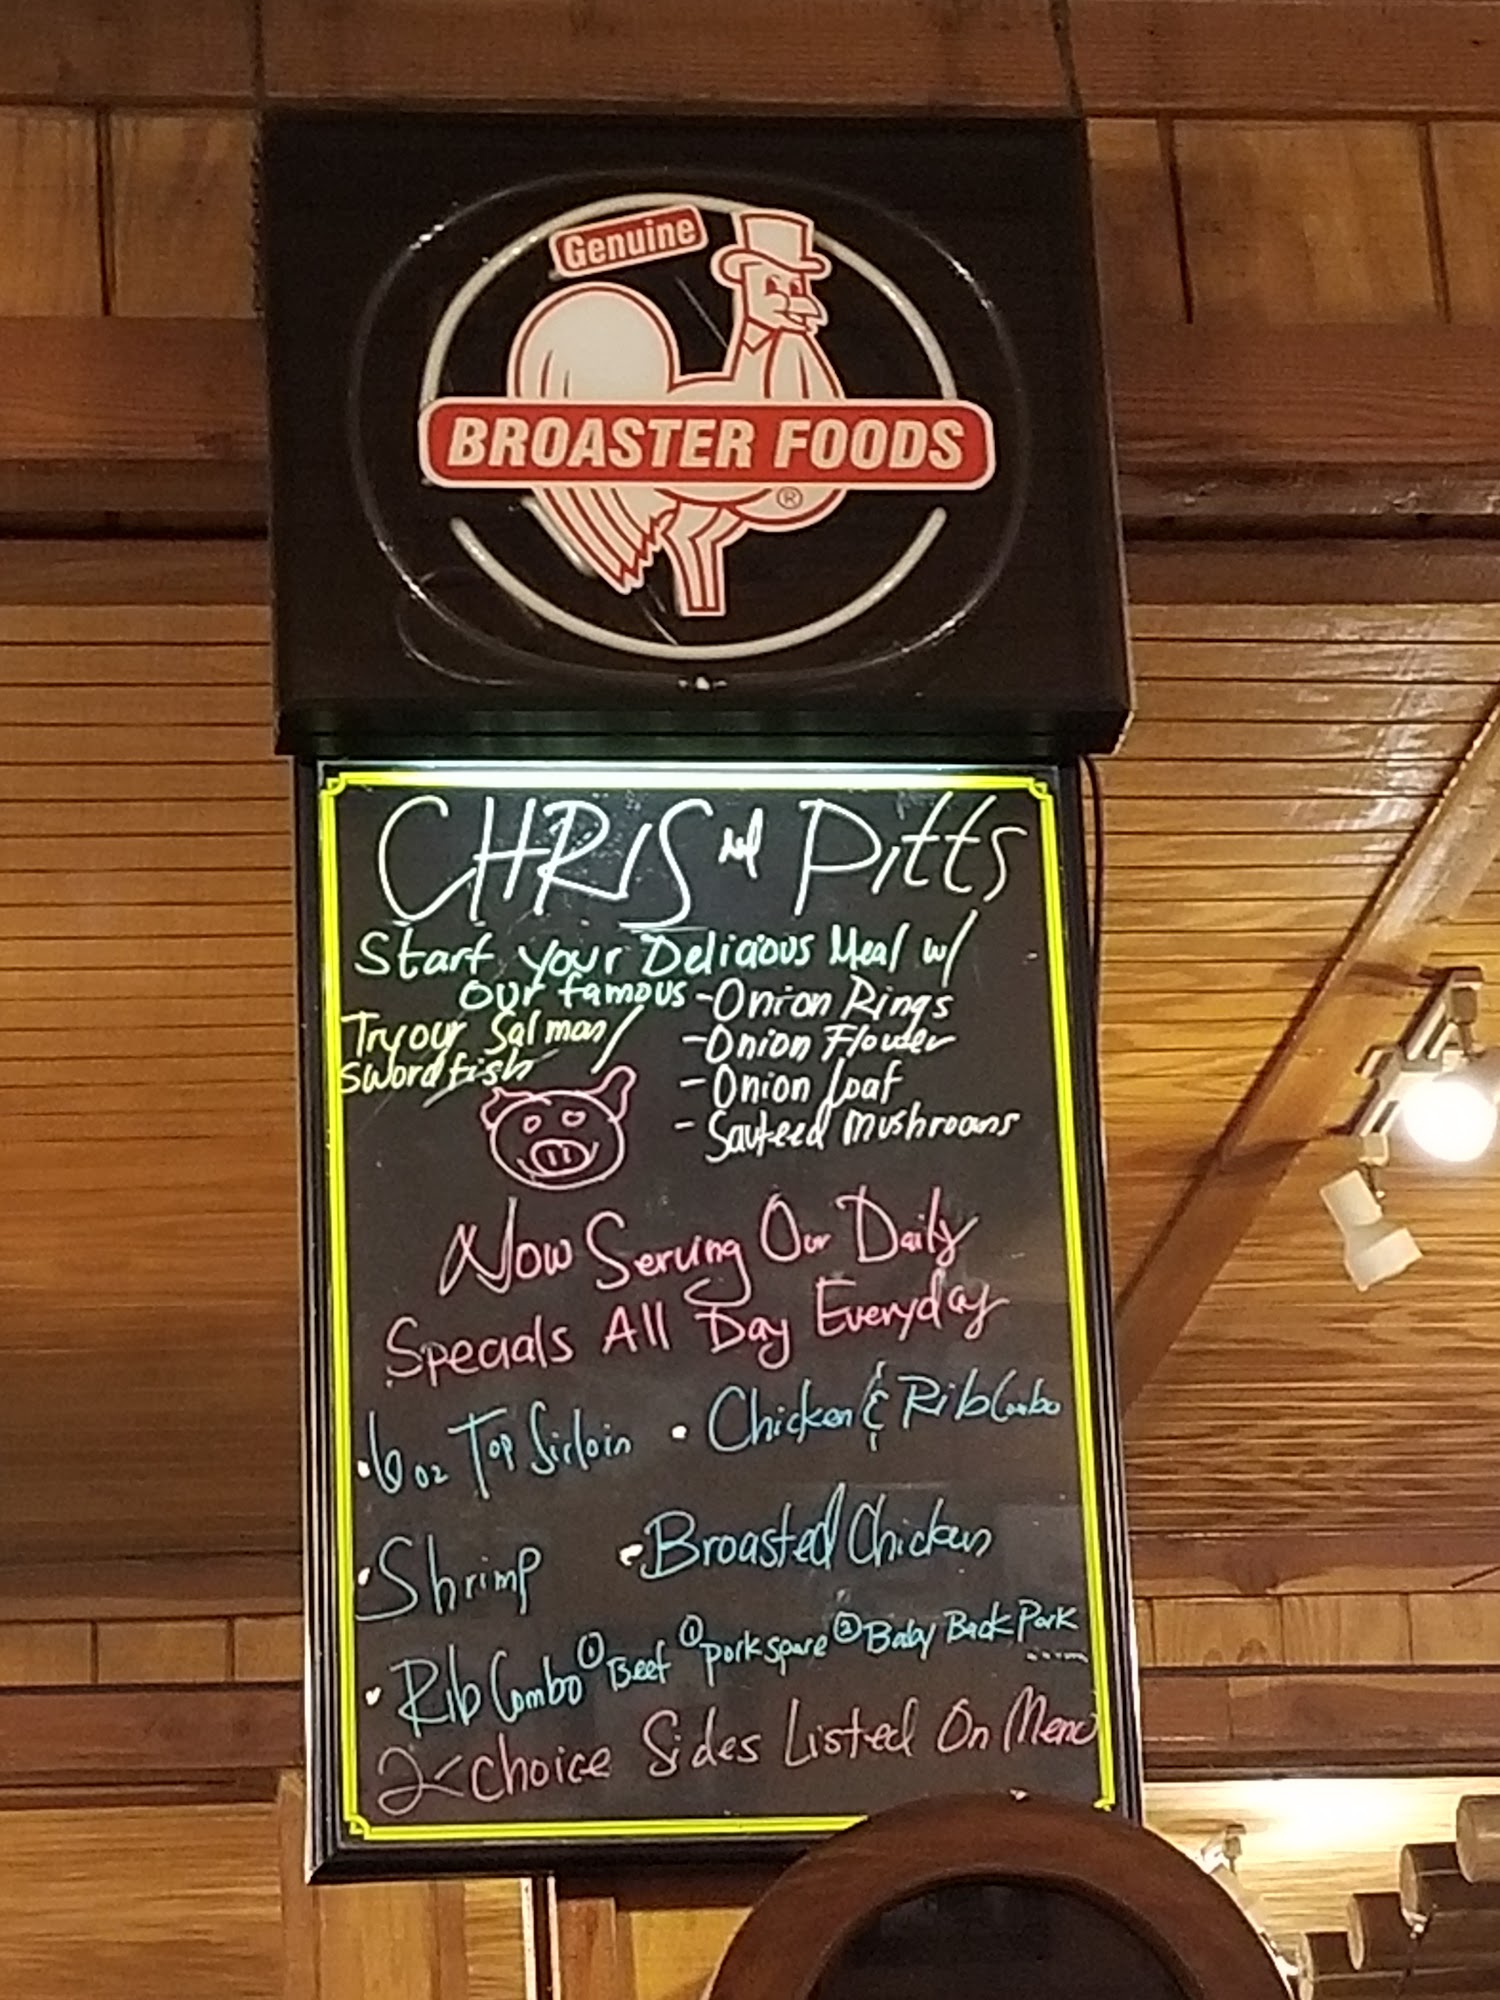 Genuine
BROASTER FOODS
®
CHRIS and Pitts
Start your Delicious Meal w/
our famous -Onion Rings
Try our Salmon/ -Onion Flower
Swordfish -Onion Loaf
- Sauteed Mushrooms
Now Serving Our Daily
Specials All Day Everyday
• 6 oz Top Sirloin • Chicken & Rib Combo
• Shrimp • Broasted Chicken
• Rib Combo ① Beef ① pork spare ② Baby Back Pork
2 choice Sides Listed On Menu